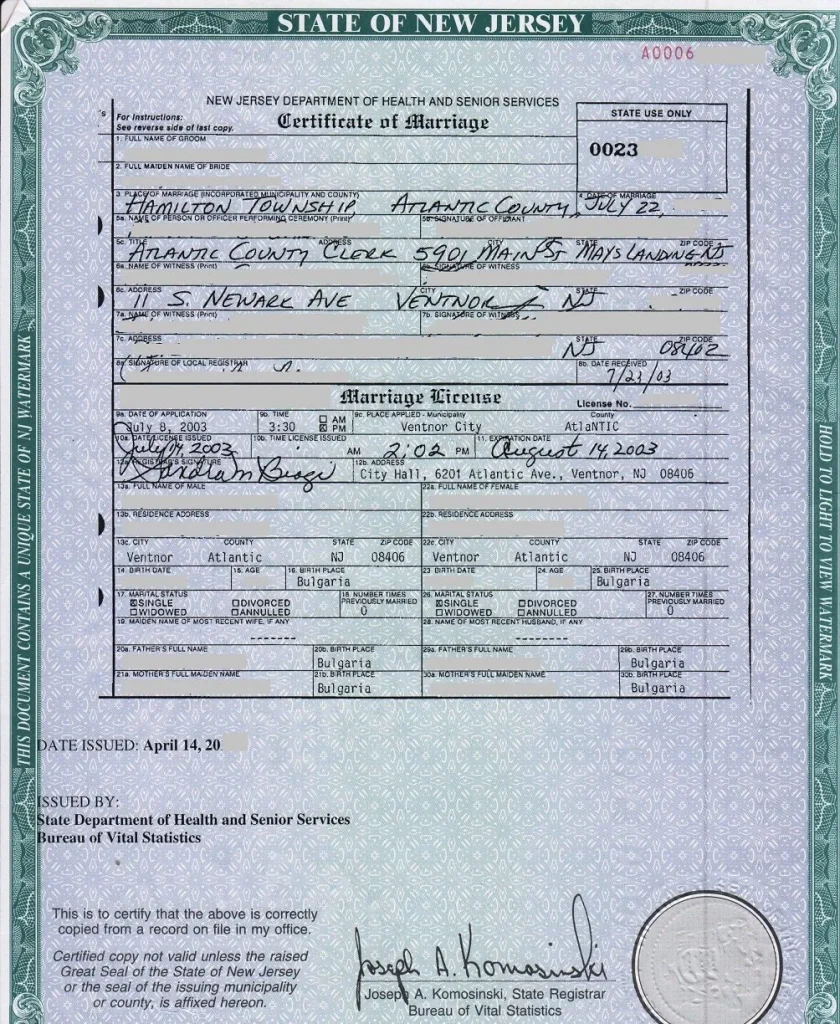 STATE OF NEW JERSEY
A0006
NEW JERSEY DEPARTMENT OF HEALTH AND SENIOR SERVICES
For Instructions:
See reverse side of last copy.
Certificate of Marriage
STATE USE ONLY
0023
1. FULL NAME OF GROOM
2. FULL MAIDEN NAME OF BRIDE
3. PLACE OF MARRIAGE (INCORPORATED MUNICIPALITY AND COUNTY) 4. DATE OF MARRIAGE
HAMILTON TOWNSHIP, ATLANTIC COUNTY, JULY 22,
5a. NAME OF PERSON OR OFFICER PERFORMING CEREMONY (Print) 5b. SIGNATURE OF OFFICIANT
5c. TITLE ADDRESS CITY STATE ZIP CODE
ATLANTIC COUNTY CLERK 5901 MAIN ST MAYS LANDING NJ
6a. NAME OF WITNESS (Print) 6b. SIGNATURE OF WITNESS
6c. ADDRESS CITY STATE ZIP CODE
11 S. NEWARK AVE VENTNOR NJ
7a. NAME OF WITNESS (Print) 7b. SIGNATURE OF WITNESS
7c. ADDRESS STATE ZIP CODE
NJ 08402
8a. SIGNATURE OF LOCAL REGISTRAR 8b. DATE RECEIVED
7/23/03
Marriage License
License No.
9a. DATE OF APPLICATION 9b. TIME AM PM 9c. PLACE APPLIED - Municipality County
July 8, 2003 3:30 Ventnor City AtlaNTIC
10a. DATE LICENSE ISSUED 10b. TIME LICENSE ISSUED 11. EXPIRATION DATE
July 14, 2003 AM 2:02 PM August 14, 2003
12a. REGISTRAR'S SIGNATURE 12b. ADDRESS
City Hall, 6201 Atlantic Ave., Ventnor, NJ 08406
13a. FULL NAME OF MALE 22a. FULL NAME OF FEMALE
13b. RESIDENCE ADDRESS 22b. RESIDENCE ADDRESS
13c. CITY COUNTY STATE ZIP CODE 22c. CITY COUNTY STATE ZIP CODE
Ventnor Atlantic NJ 08406 Ventnor Atlantic NJ 08406
14. BIRTH DATE 15. AGE 16. BIRTH PLACE 23. BIRTH DATE 24. AGE 25. BIRTH PLACE
Bulgaria Bulgaria
17. MARITAL STATUS 18. NUMBER TIMES PREVIOUSLY MARRIED 26. MARITAL STATUS 27. NUMBER TIMES PREVIOUSLY MARRIED
SINGLE DIVORCED SINGLE DIVORCED
WIDOWED ANNULLED 0 WIDOWED ANNULLED 0
19. MAIDEN NAME OF MOST RECENT WIFE, IF ANY 28. NAME OF MOST RECENT HUSBAND, IF ANY
-------  -------
20a. FATHER'S FULL NAME 20b. BIRTH PLACE 29a. FATHER'S FULL NAME 29b. BIRTH PLACE
Bulgaria Bulgaria
21a. MOTHER'S FULL MAIDEN NAME 21b. BIRTH PLACE 30a. MOTHER'S FULL MAIDEN NAME 30b. BIRTH PLACE
Bulgaria Bulgaria
DATE ISSUED: April 14, 20
ISSUED BY:
State Department of Health and Senior Services
Bureau of Vital Statistics
This is to certify that the above is correctly
copied from a record on file in my office.
Certified copy not valid unless the raised
Great Seal of the State of New Jersey
or the seal of the issuing municipality
or county, is affixed hereon.
Joseph A. Komosinski
Joseph A. Komosinski, State Registrar
Bureau of Vital Statistics
THIS DOCUMENT CONTAINS A UNIQUE STATE OF NJ WATERMARK
HOLD TO LIGHT TO VIEW WATERMARK